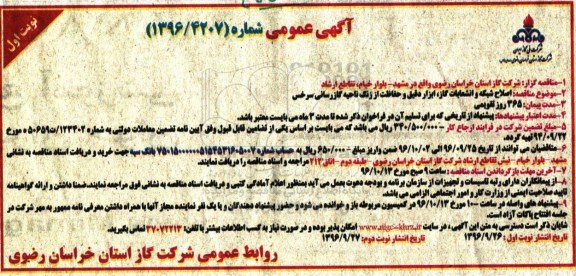 نوبت اول
آگهی عمومی شماره (۱۳۹۶/۴۲۰۷)
شرکت ملی گاز ایران
۱-مناقصه گزار: شرکت گاز استان خراسان رضوی واقع در مشهد- بلوار خیام، تقاطع ارشاد
۲-موضوع مناقصه: اصلاح شبکه و انشعابات گاز، ابزار دقیق و حفاظت از زنگ ناحیه گازرسانی سرخس
۳-مدت پیمان: ۳۶۵ روز تقویمی
۴-مدت اعتبار پیشنهادها: پیشنهاد از تاریخی که برای تسلیم آن در فراخوان ذکر شده تا مدت ۳ ماه می بایست معتبر باشد.
۵-مبلغ تضمین شرکت در فرآیند ارجاع کار- ۳۴۰/۵۰۰/۰۰۰ ریال می باشد که می بایست بر اساس یکی از تضامین قابل قبول وفق آیین نامه تضمین معاملات دولتی به شماره ۱۲۳۴۰۲/ت۵۰۶۵۹ ه مورخ
۹۴/۰۹/۲۲ تهیه گردد.
۶-متقاضیان می توانند از تاریخ ۹۶/۰۹/۲۵ لغایت ۹۶/۱۰/۰۲ ضمن واریز مبلغ ۶۵۰/۰۰۰ ریال به حساب شماره بانک سپه جهت خرید و دریافت اسناد مناقصه به نشانی
مشهد- بلوار خیام- نبش تقاطع ارشاد شرکت گاز استان خراسان رضوی- طبقه دوم- اتاق ۲۱۳ مراجعه و اسناد مناقصه را دریافت نمایند.
۷-آخرین مهلت بازگرداندن اسناد مناقصه: ساعت ۹ صبح مورخ ۹۶/۱۰/۱۳
۸-از پیمانکاران دارای رتبه تاسیسات و تجهیزات از سازمان برنامه و بودجه دعوت بعمل می آید بمنظور اعلام آمادگی کتبی و دریافت اسناد مناقصه به نشانی فوق مراجعه نمایند. ضمنا داشتن و ارائه گواهینامه
تایید صلاحیت ایمنی از وزارت کار و امور اجتماعی الزامی می باشد.
۹-پیشنهاد های واصله در ساعت ۱۰:۰۰ مورخ ۹۶/۱۰/۱۳ در کمیسیون مناقصات مربوطه باز و خوانده می شود و حضور پیشنهاد دهندگان و یا یک نفر نماینده مجاز آنها با همراه داشتن معرفی نامه ممهور به مهر شرکت در
جلسه افتتاح پاکات آزاد است.
شایان ذکر است دسترسی به متن این آگهی، در سایت www.nigc-khrz.ir امکان پذیر بوده و در صورت نیاز به کسب اطلاعات بیشتر با تلفن: ۳۷۰۷۲۲۱۳ تماس بگیرید.
تاریخ انتشار نوبت اول: ۱۳۹۶/۹/۲۶ تاریخ انتشار نوبت دوم: ۱۳۹۶/۹/۲۷
روابط عمومی شرکت گاز استان خراسان رضوی